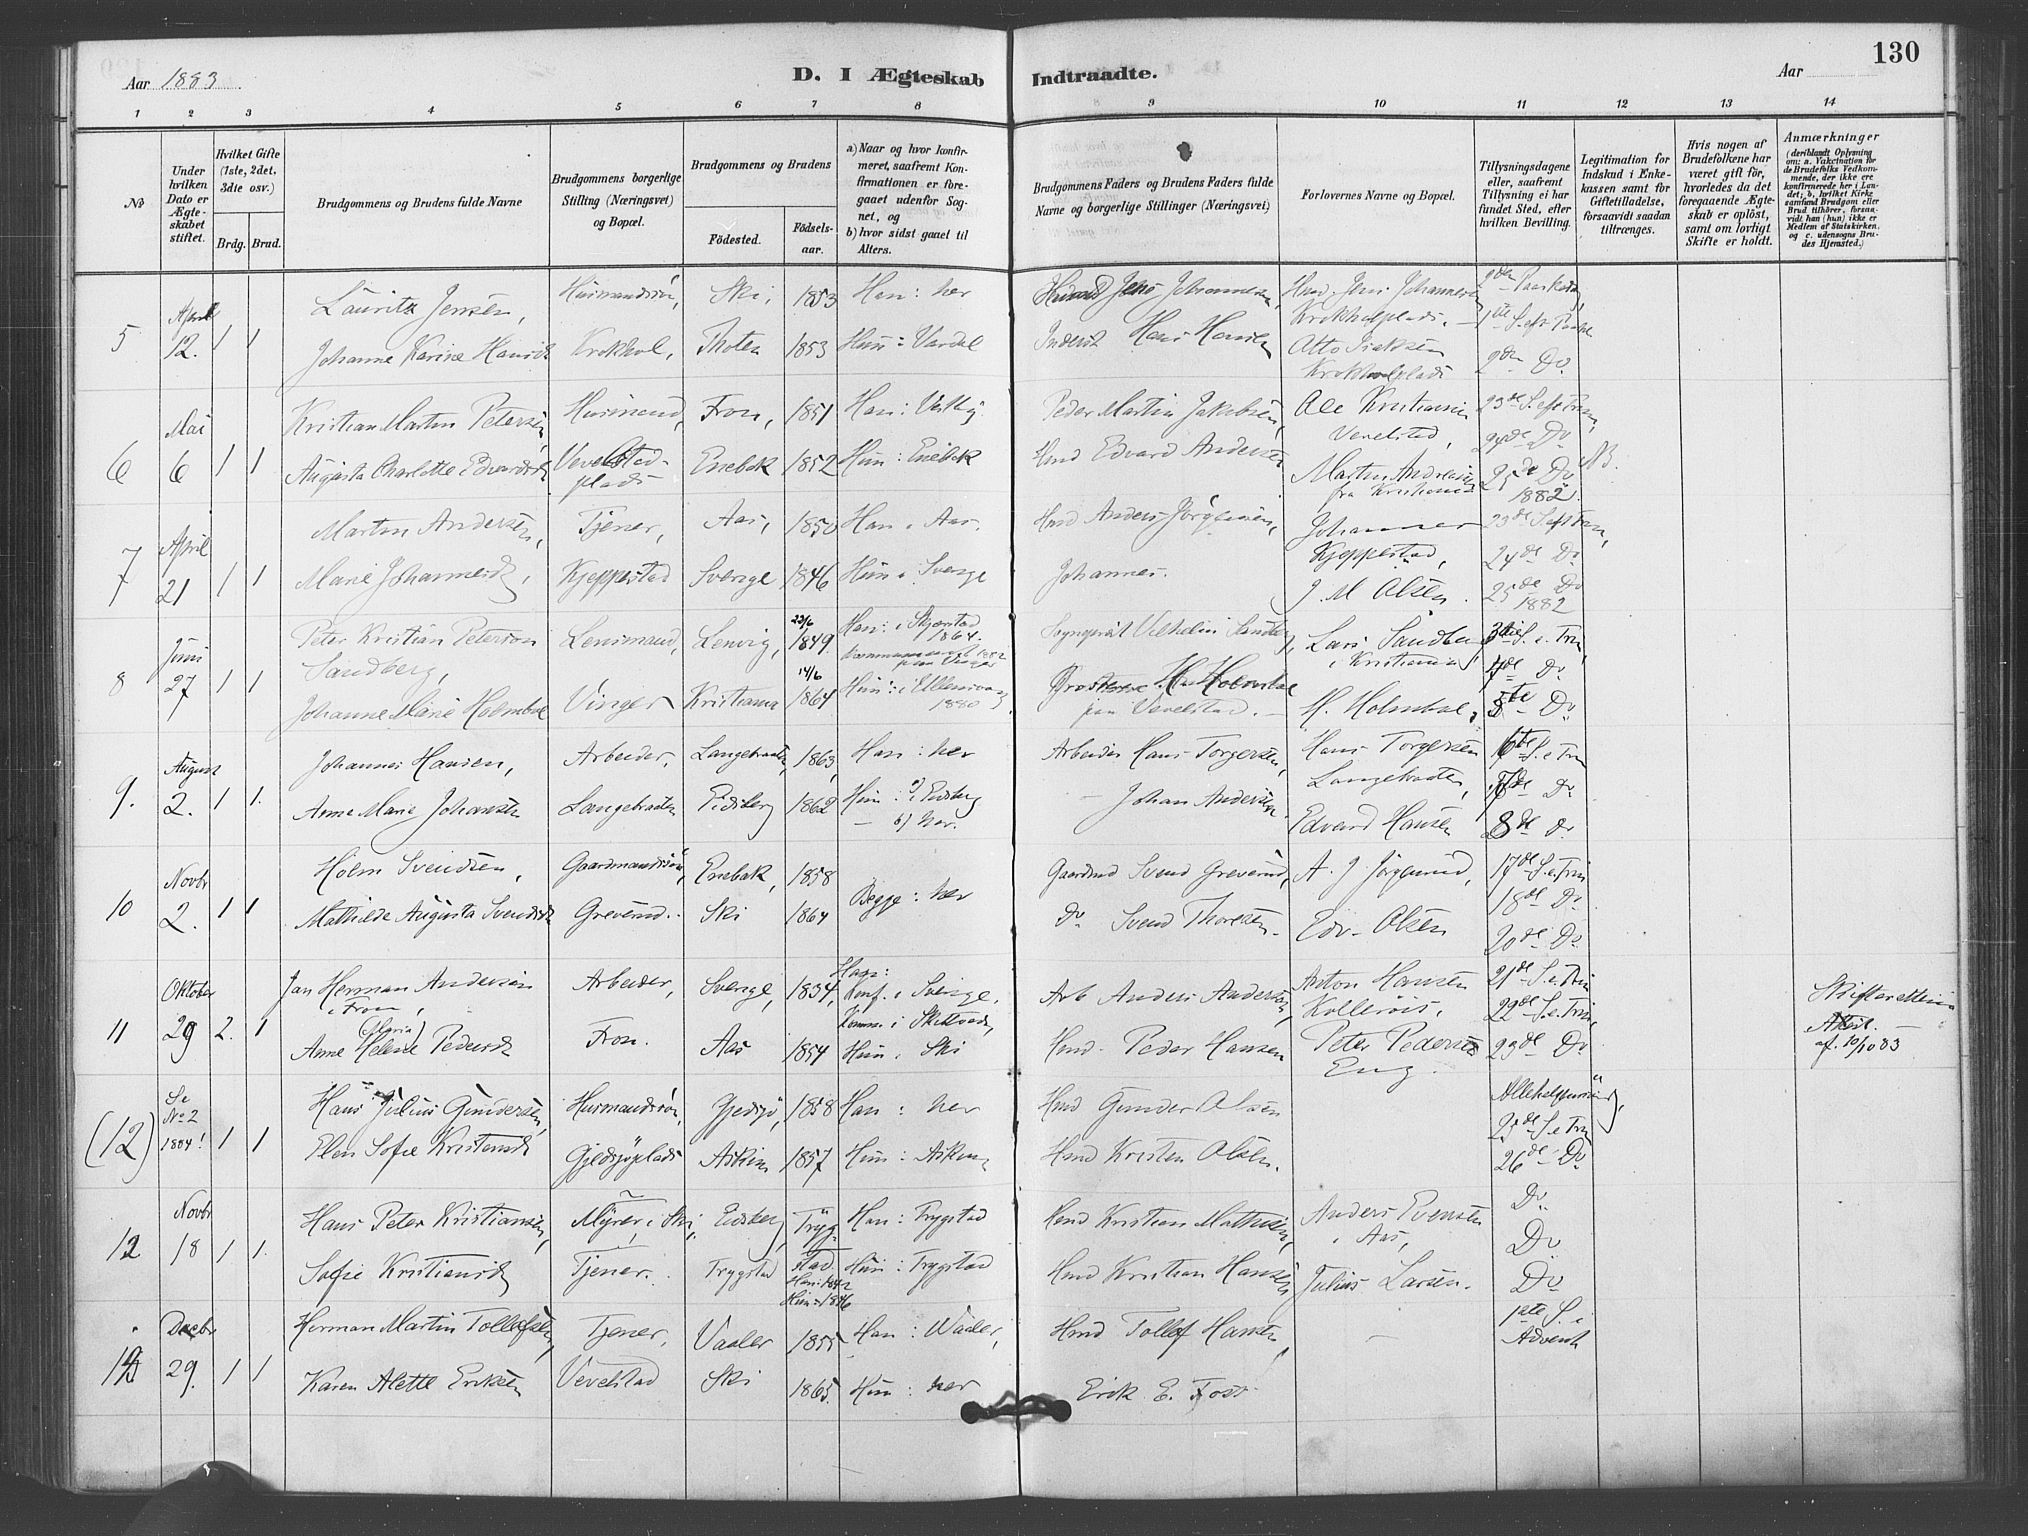 130
Aar 1883
D. I Ægteskab Indtraadte.
Aar
1 2 3 4 5 6 7 8 8 9 10 11 12 13 14
No
Under hvilken Dato er Ægteskabet stiftet.
Hvilket Gifte (1ste, 2det, 3die osv.)
Brdg. Brud.
Brudgommens og Brudens fulde Navne
Brudgommens borgerlige Stilling (Næringsvei) og Bopæl.
Brudgommens og Brudens
Fødested. Fødselsaar.
a) Naar og hvor konfirmeret, saafremt Konfirmationen er foregaaet udenfor Sognet, og
b) hvor sidst gaaet til Alters.
Brudgommens Faders og Brudens Faders fulde Navne og borgerlige Stillinger (Næringsvei)
Forlovernes Navne og Bopæl.
Tillysningsdagene eller, saafremt Tillysning ei har fundet Sted, efter hvilken Bevilling.
Legitimation for Indskud i Enkekassen samt for Giftetilladelse, forsaavidt saadan tiltrænges.
Hvis nogen af Brudefolkene har været gift før, hvorledes da det foregaaende Ægteskab er opløst, samt om lovligt Skifte er holdt.
Anmærkninger
(deriblandt Oplysning om: a. Vakcination for de Brudefolks Vedkommende, der ikke ere konfirmerede her i Landet; b. hvilket Kirkesamfund Brudgom eller Brud tilhører, forsaavidt han (hun) ikke er Medlem af Statskirken, og c. udensogns Brudes Hjemsted.)
5 April 12. 1 1
Lauritz Jensen, Husmandssøn, Ski, 1853 Han: her
Jens Johannesen, Hmd. Jens Johannesen
Krokholplads. 1ste S. eft Paske
Johanne Karine Hansd. Krokhol, Thoten 1853 Hun: Vardal
Inderst Hans Hansen
2den Do.
Krokholplads
6 Mai 6 1 1
Kristian Martin Petersen, Husmand, Fron, 1851 Han: Vestby.
Peder Martin Jakobsen, Ole Kristiansen 23de S. eft Trin,
Vevelstad, 24de Do
Augusta Charlotte Edvardsd. Vevelstadplads Enebak 1852 Hun: Enebak
Hmd Edvard Andersen
Martin Andresen fra Kristiania
25de Do 1882. NB.
7 April 21 1 1
Martin Andersen, Tjener, Aas, 1850 Han i Aas.
Hmd Anders Jørgensen, Johannes Kjeppestad, 23de S eft Trin,
24de Do
Marie Johannesd., Kjeppestad Sverige 1846 Hun i Sverige
Johannes. J. M Olsen. 25de Do 1882
8 Juni 27 1 1
Peter Kristian Peterson Sandberg, Lensmand, Lenvig, 22/6 1849. Han: i Skjerstad 1864.
Sogneprest Vilhelm Sandberg, Lars Sandberg i Kristiania, 3die S. e. Trin,
4de Do
Johanne Marie Holmboe Vinger Kristiania 14/6 1864 Hun: i Ullensvang 1880
H. Holmboe paa Vevelstad. H. Holmboe, 5te Do
9. August 2. 1 1.
Johannes Hansen, Arbeider, Langebraaten, 1863, Han: her
Arbeider Hans Torgersen, Hans Torgersen Langebraaten, 6te S. e Trin
7de Do
Anne Marie Johansen Langebraaten Eidsberg 1862 Hun: a) i Eidsberg
— b) her.
— Johan Andersen. Edvard Hansen 8de Do
10 Novbr 2. 1 1
Holm Svendsen, Gaardmandssøn, Enebak, 1858
Begge: her
Gaardmd Svend Greverud, A. J. Jørgensrud, 17de S. e. Trin
18de Do
Mathilde Augusta Svendsd. Greverud. Ski 1864
Do Svend Thoresen. Edv. Olsen 20de Do
11 Oktober 29 2. 1
Jan Herman Andersen i Fron, Arbeider, Sverige, 1834, Han: Konf. i Sverige.
Komm. i Skiptvedt,
Arb Anders Andersen, Anton Hansen Kollerøis, 21de S. e. Trin
22de S. e. Trin,
Anne (Maria) Helene Pedersd. Fron. Aas 1854 Hun i Ski
Hmd. Peder Hansen Peter Pedersen Eng. 23de Do
Skifteretten Attest. af. 10/10 83
(12) Se No 2 1884! 1 1
Hans Julius Gundersen, Husmandssøn, Gjedsjø, 1858 Han: her
Hmd Gunder Olsen Allehelgensd.,
25de S. e Trin
Elen Sofie Kristensd. Gjedsjøplads Askim 1857 Hun: Askim
Hmd Kristen Olsen. 26de Do
12 Novbr 18 1 1.
Hans Peter Kristiansen, Myrer, i Ski, Eidsberg, Trygstad Han: Trygstad
Hmd Kristian Mathisen, Anders Evensen i Aas, Do
Do
Sofie Kristiansd. Tjener. Trygstad Hun: 1846 Hun: Trygstad
Hmd Kristian Hansen Julius Larsen. Do
13 Decbr 29. 1 1
Herman Martin Tollefsen, Tjener, Vaaler 1855 Han: Waaler,
Hmd Tollef Hansen, — 1ste S. i Advent
Karen Alette Eriksen Vevelstad Ski 1865. Hun: her
Erik E. Foss